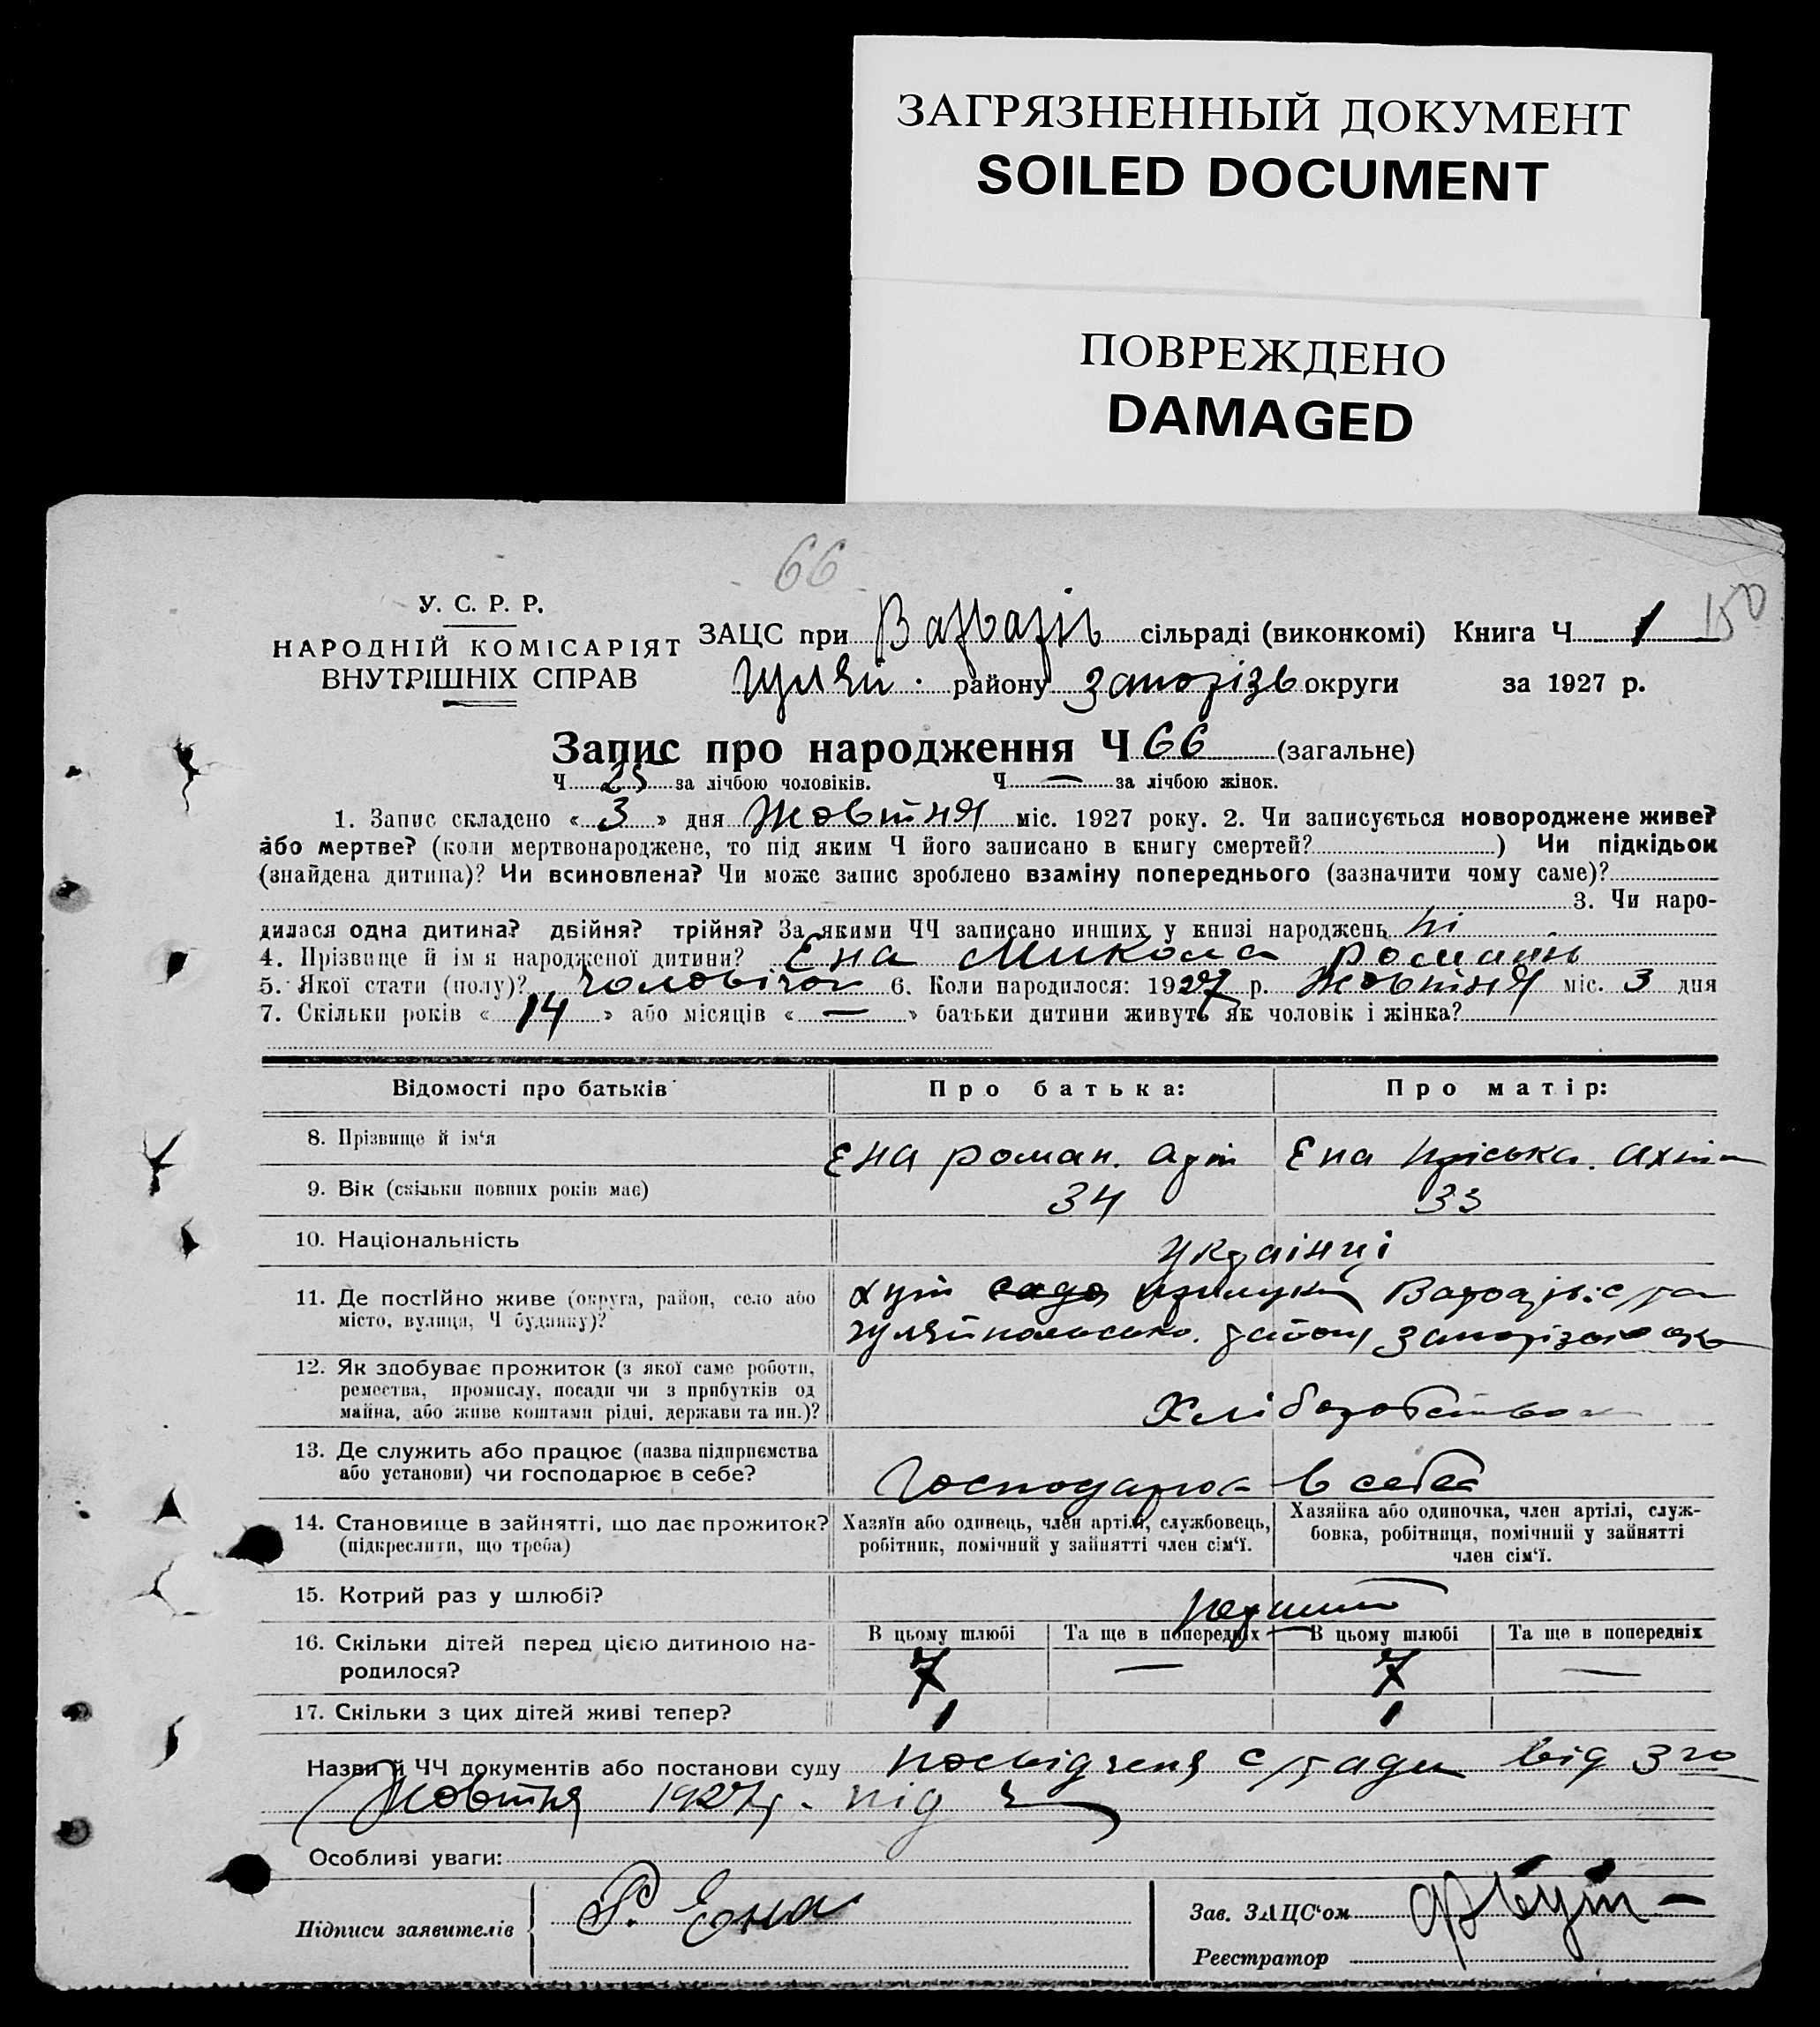 ЗАГРЯЗНЕННЫЙ ДОКУМЕНТ
SOILED DOCUMENT
ПОВРЕЖДЕНО
DAMAGED
66
150
У. С. Р. Р.
НАРОДНІЙ КОМІСАРІЯТ
ВНУТРІШНІХ СПРАВ
ЗАЦС при сільраді (виконкомі) Книга Ч 1
Гуляй. району Запорізь округи за 1927 р.
Запис про народження Ч 66 (загальне)
Ч 25 за лічбою чоловіків. Ч — за лічбою жінок.
1. Запис складено « 3 » дня Жовтня міс. 1927 року. 2. Чи записується новороджене живе?
або мертве? (коли мертвонароджене, то під яким Ч його записано в книгу смертей? ) Чи підкідьок
(знайдена дитина)? Чи всиновлена? Чи може запис зроблено взаміну попереднього (зазначити чому саме)?
3. Чи наро-
дилася одна дитина? двійня? трійня? За якими ЧЧ записано инших у книзі народжень ні
4. Прізвище й ім'я народженої дитини? Єна Микола Романів
5. Якої стати (полу)? чоловічої 6. Коли народилося: 1927 р. Жовтня міс. 3 дня
7. Скільки років « 14 » або місяців « — » батьки дитини живуть як чоловік і жінка?
Відомості про батьків Про батька: Про матір:
8. Прізвище й ім'я Єна Роман. Єна Пріська.
9. Вік (скільки повних років має) 34 33
10. Національність Українці
11. Де постійно живе (округа, район, село або
місто, вулиця, Ч будинку)?
хут
Гуляйпольсько. району
12. Як здобуває прожиток (з якої саме роботи,
ремества, промислу, посади чи з прибутків од
майна, або живе коштами рідні, держави та ин.)?
Хліборобство
13. Де служить або працює (назва підприємства
або установи) чи господарює в себе?
Господарює в себе
14. Становище в зайнятті, що дає прожиток?
(підкреслити, що треба)
Хазяїн або одинець, член артілі, службовець,
робітник, помічний у зайнятті член сім'ї.
Хазяйка або одиночка, член артілі, служ-
бовка, робітниця, помічний у зайнятті
член сім'ї.
15. Котрий раз у шлюбі? перший
16. Скільки дітей перед цією дитиною на-
родилося?
В цьому шлюбі Та ще в попередніх В цьому шлюбі Та ще в попередніх
7 — 7 —
17. Скільки з цих дітей живі тепер? 1 1
Назви й ЧЧ документів або постанови суду посвідченя с/ради від 3го
Жовтня 1927р. під
Особливі уваги:
Підписи заявителів Р. Єна
Зав. ЗАЦС'ом
Реєстратор